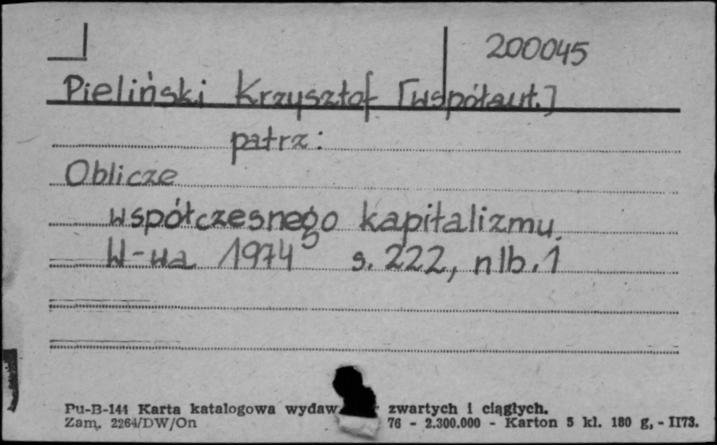 200045
Pieliński Krzysztof [współaut.]
patrz:
Oblicze
współczesnego kapitalizmu.
W-wa 1974 s. 222, nlb. 1
Pu-B-144 Karta katalogowa wydaw zwartych i ciągłych.
Zam. 2264/DW/On 76 - 2.300.000 - Karton 5 kl. 180 g, - II73.